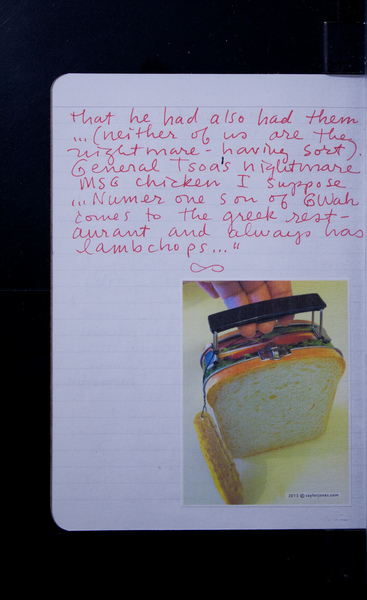 that he had also had them
... (neither of us are the
nightmare - having sort).
General Tsoa's nightmare
MSG chicken I suppose
... Numer one son of GWah
comes to the greek rest-
aurant and always has
lambchops..."
2013 © taylorjones.com